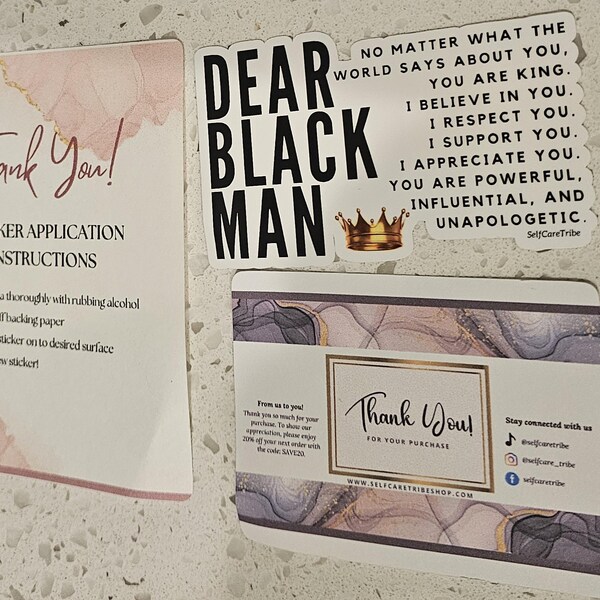 Thank You!
KER APPLICATION
NSTRUCTIONS
a thoroughly with rubbing alcohol
ff backing paper
sticker on to desired surface
ew sticker!
DEAR
BLACK
MAN
NO MATTER WHAT THE
WORLD SAYS ABOUT YOU,
YOU ARE KING.
I BELIEVE IN YOU.
I RESPECT YOU.
I SUPPORT YOU.
I APPRECIATE YOU.
YOU ARE POWERFUL,
INFLUENTIAL, AND
UNAPOLOGETIC.
SelfCareTribe
From us to you!
Thank you so much for your
purchase. To show our
appreciation, please enjoy
20% off your next order with
the code: SAVE20.
Thank You!
FOR YOUR PURCHASE
WWW.SELFCARETRIBESHOP.COM
Stay connected with us
@selfcaretribe
@selfcare_tribe
selfcaretribe